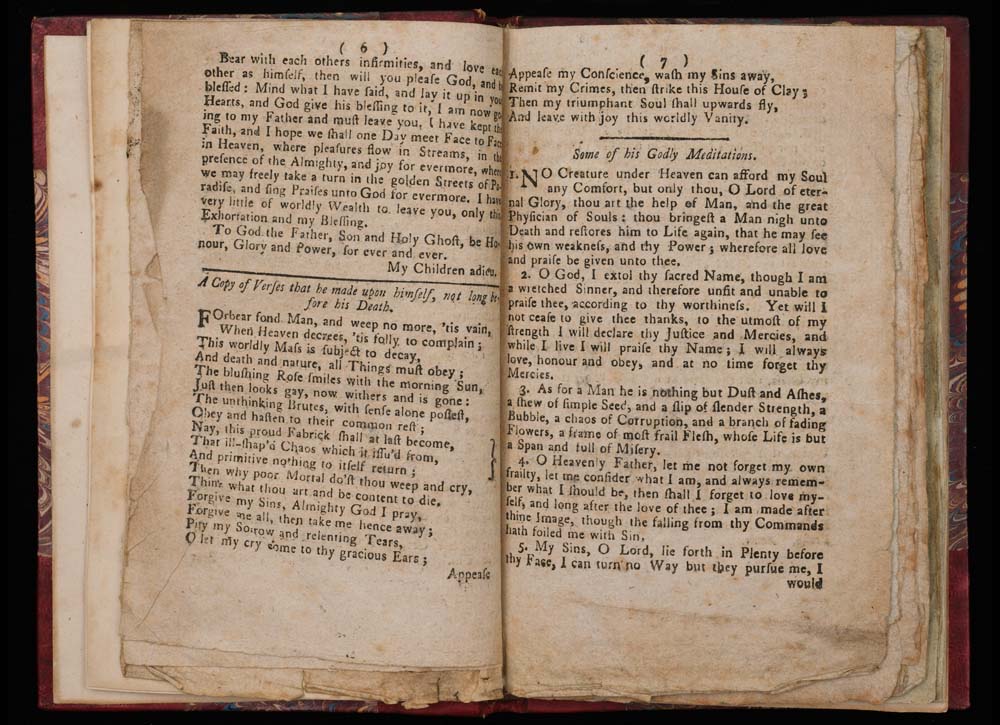 ( 6 )
Bear with each others infirmities, and love each
other as himſelf, then will you pleaſe God, and be
bleſſed : Mind what I have ſaid, and lay it up in your
Hearts, and God give his bleſſing to it, I am now go-
ing to my Father and muſt leave you, I have kept the
Faith, and I hope we ſhall one Day meet Face to Face
in Heaven, where pleaſures flow in Streams, in the
preſence of the Almighty, and joy for evermore, where
we may freely take a turn in the golden Streets of Pa-
radiſe, and ſing Praiſes unto God for evermore. I have
very little of worldly Wealth to leave you, only this
Exhortation and my Bleſſing.
To God the Father, Son and Holy Ghoſt, be Ho-
nour, Glory and Power, for ever and ever.
My Children adieu.
A Copy of Verſes that he made upon himſelf, not long be-
fore his Death.
FOrbear fond Man, and weep no more, 'tis vain,
When Heaven decrees, 'tis folly to complain ;
This worldly Maſs is ſubject to decay,
And death and nature, all Things muſt obey ;
The bluſhing Roſe ſmiles with the morning Sun,
Juſt then looks gay, now withers and is gone :
The unthinking Brutes, with ſenſe alone poſſeſt,
Obey and haſten to their common reſt ;
Nay, this proud Fabrick ſhall at laſt become,
That ill-ſhap'd Chaos which it iſſu'd from,
And primitive nothing to itſelf return ;
Then why poor Mortal do'ſt thou weep and cry,
Think what thou art and be content to die.
Forgive my Sins, Almighty God I pray,
Forgive me all, then take me hence away ;
Pity my Sorrow and relenting Tears,
O let my cry come to thy gracious Ears ;
Appeaſe
( 7 )
Appeaſe my Conſcience, waſh my Sins away,
Remit my Crimes, then ſtrike this Houſe of Clay ;
Then my triumphant Soul ſhall upwards fly,
And leave with joy this worldly Vanity.
Some of his Godly Meditations.
1. NO Creature under Heaven can afford my Soul
any Comfort, but only thou, O Lord of eter-
nal Glory, thou art the help of Man, and the great
Phyſician of Souls : thou bringeſt a Man nigh unto
Death and reſtores him to Life again, that he may ſee
his own weakneſs, and thy Power ; wherefore all love
and praiſe be given unto thee.
2. O God, I extol thy ſacred Name, though I am
a wretched Sinner, and therefore unfit and unable to
praiſe thee, according to thy worthineſs. Yet will I
not ceaſe to give thee thanks, to the utmoſt of my
ſtrength I will declare thy Juſtice and Mercies, and
while I live I will praiſe thy Name ; I will always
love, honour and obey, and at no time forget thy
Mercies.
3. As for a Man he is nothing but Duſt and Aſhes,
a ſhew of ſimple Seed, and a ſlip of ſlender Strength, a
Bubble, a chaos of Corruption, and a branch of fading
Flowers, a frame of moſt frail Fleſh, whoſe Life is but
a Span and full of Miſery.
4. O Heavenly Father, let me not forget my own
frailty, let me conſider what I am, and always remem-
ber what I ſhould be, then ſhall I forget to love my-
ſelf, and long after the love of thee ; I am made after
thine Image, though the falling from thy Commands
hath foiled me with Sin.
5. My Sins, O Lord, lie forth in Plenty before
thy Face, I can turn no Way but they purſue me, I
would